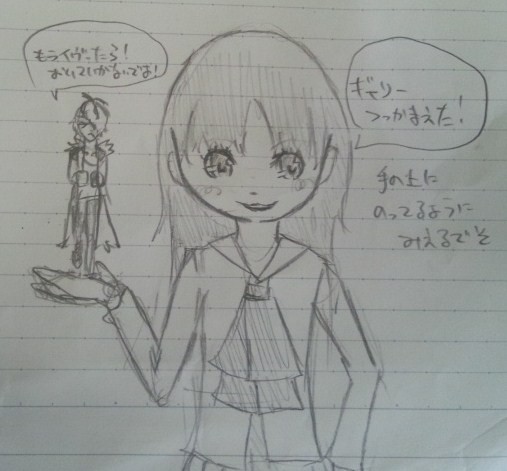 もうイヴったら！
おいていかないでよ！
ギャリー
つっかまえた！
手の上に
のってるように
みえるでそ